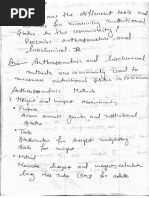 are the different tools and
for measuring nutritional
status in the community?
Describe anthropometric and
biochemical.
Ans Anthropometric and biochemical
methods are commonly used to
measure nutritional status in
Anthropometric Methods
1. Height and weight Measurements
• Purpose
Assess overall growth and nutritional
status.
• Tools
Stadiometer for height weighing
scale for weight
• Method
Measure height and weight, calculate
for adults